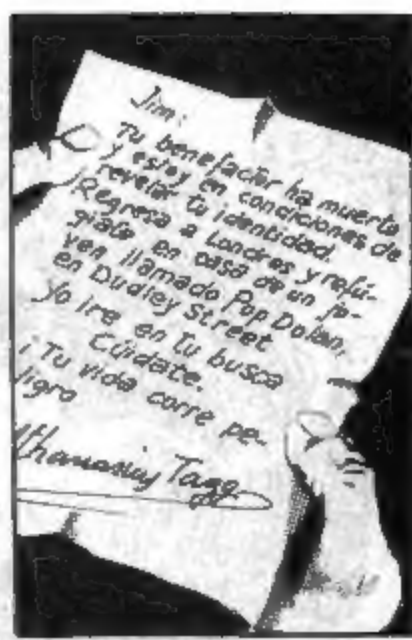 Jim:
Tu benefactor ha muerto
y estoy en condiciones de
revelar tu identidad.
Regresa a Londres y refú-
giate en casa de un jo-
ven llamado Pop Dolan,
en Dudley Street
Yo iré en tu busca
Cúidate.
¡Tu vida corre pe-
ligro
Tang